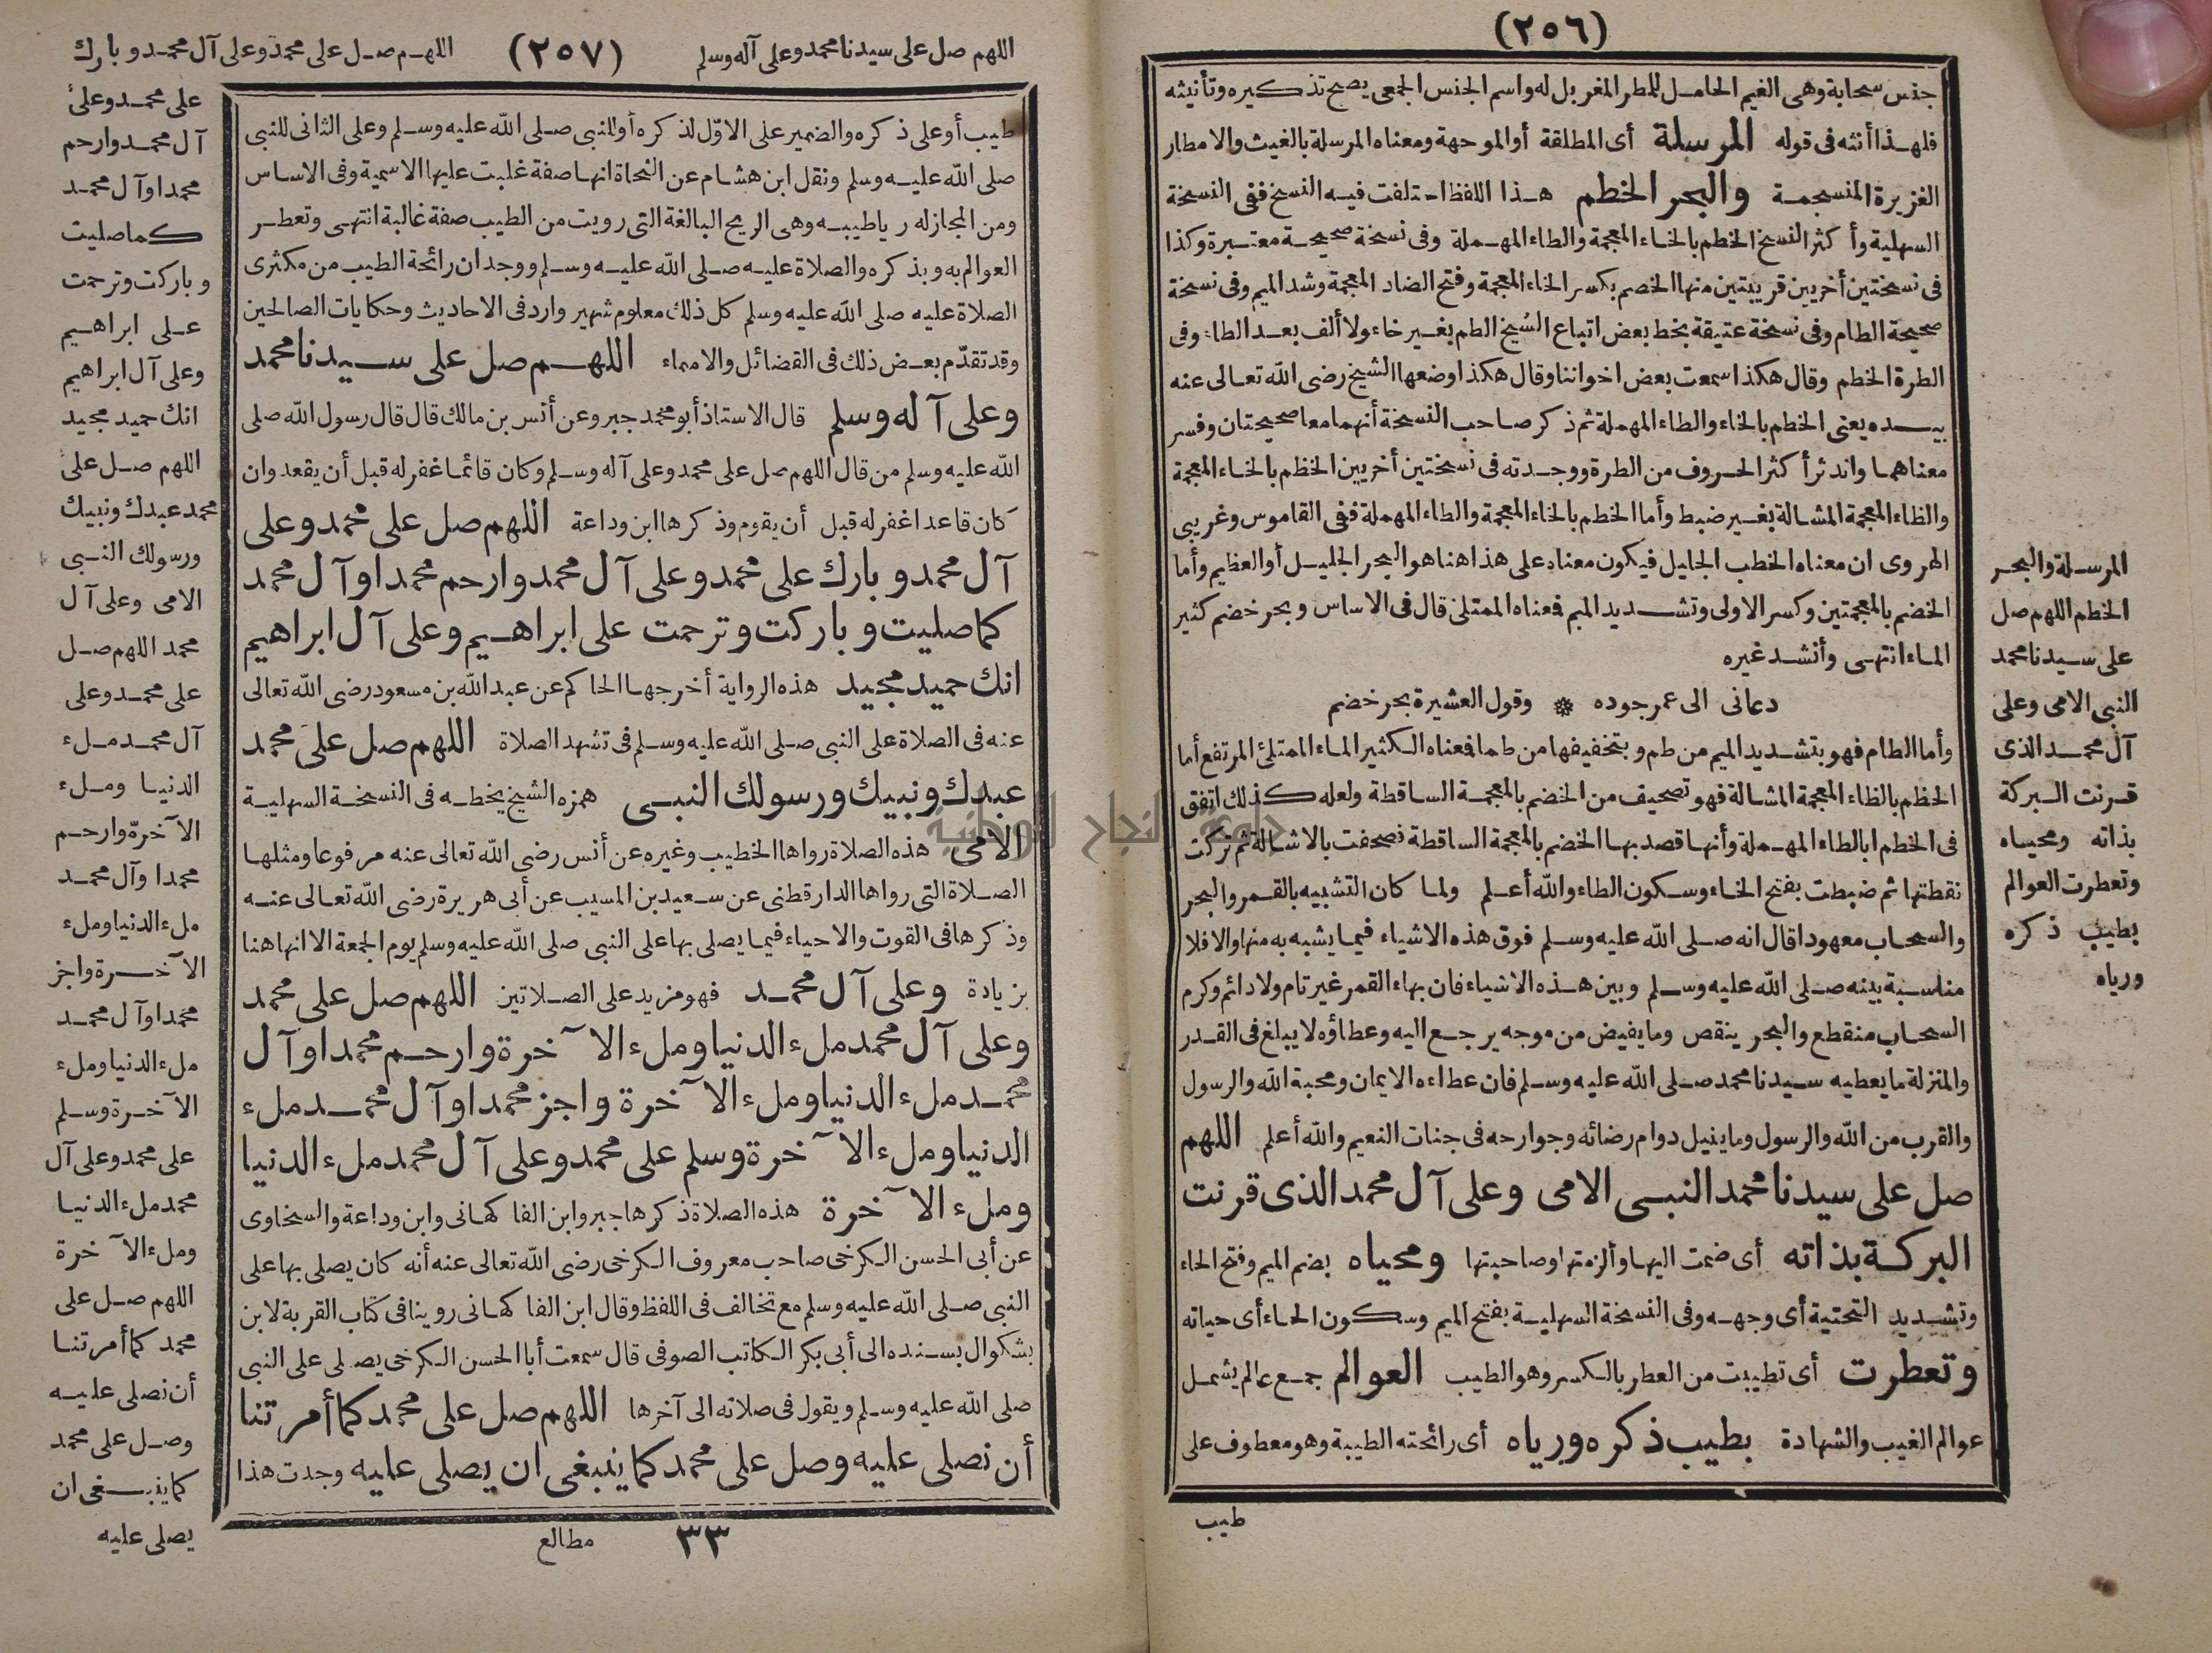 (٢٥٦)
جنس سحابة وهى الغيم الحامل للمطر المغربل له واسم الجنس الجمعى يصح تذكيره وتأنيثه
فلهذا أنثه فى قوله المرسلة أى المطلقة أو الموجهة ومعناه المرسلة بالغيث والامطار
الغزيرة المنسجمة والبحر الخطم هذا اللفظ اختلفت فيه النسخ ففى النسخة
السهلية وأكثر النسخ الخطم بالخاء المعجمة والطاء المهملة وفى نسخة صحيحة معتبرة وكذا
فى نسختين أخريين قريبتين منها الخضم بكسر الخاء المعجمة وفتح الضاد المعجمة وشد الميم وفى نسخة
صحيحة الطام وفى نسخة عتيقة بخط بعض اتباع الشيخ الطم بغير خاء ولا ألف بعد الطاء وفى
الطرة الخطم وقال هكذا سمعت بعض اخواننا وقال هكذا وضعها الشيخ رضى الله تعالى عنه
بيده يعنى الخطم بالخاء والطاء المهملة ثم ذكر صاحب النسخة أنهما معا صحيحتان وفسر
معناهما واندثر أكثر الحروف من الطرة ووجدته فى نسختين أخريين الخظم بالخاء المعجمة
والظاء المعجمة المشالة بغير ضبط وأما الخطم بالخاء المعجمة والطاء المهملة ففى القاموس وغريبى
الهروى ان معناه الخطب الجليل فيكون معناه على هذا هنا هو البحر الجليل أو العظيم وأما
الخضم بالمعجمتين وكسر الاولى وتشديد الميم فمعناه الممتلئ قال فى الاساس وبحر خضم كثير
الماء انتهى وأنشد غيره
دعانى الى عمر جوده * وقول العشيرة بحر خضم
وأما الطام فهو بتشديد الميم من طم وبتخفيفها من طما فمعناه الكثير الماء الممتلئ المرتفع أما
الخظم بالظاء المعجمة المشالة فهو تصحيف من الخضم بالمعجمة الساقطة ولعله كذلك اتفق
فى الخطم بالطاء المهملة وأنها قصد بها الخضم بالمعجمة الساقطة فصحفت بالاشالة ثم تركت
نقطتها ثم ضبطت بفتح الخاء وسكون الطاء والله أعلم ولما كان التشبيه بالقمر والبحر
والسحاب معهودا قال انه صلى الله عليه وسلم فوق هذه الاشياء فيما يشبه به منها والافلا
مناسبة بينه صلى الله عليه وسلم وبين هذه الاشياء فان بهاء القمر غير تام ولا دائم وكرم
السحاب منقطع والبحر ينقص وما يفيض من موجه يرجع اليه وعطاؤه لا يبلغ فى القدر
والمنزلة ما يعطيه سيدنا محمد صلى الله عليه وسلم فان عطاءه الايمان ومحبة الله والرسول
والقرب من الله والرسول وما ينيل دوام رضائه وجوارحه فى جنات النعيم والله أعلم اللهم
صل على سيدنا محمد النبى الامى وعلى آل محمد الذى قرنت
البركة بذاته أى ضمت اليها وألزمتها وصاحبتها ومحياه بضم الميم وفتح الحاء
وتشديد التحتية أى وجهه وفى النسخة السهلية بفتح الميم وسكون الحاء أى حياته
وتعطرت أى تطيبت من العطر بالكسر وهو الطيب العوالم جمع عالم يشمل
عوالم الغيب والشهادة بطيب ذكره ورياه أى رائحته الطيبة وهو معطوف على
طيب
المرسلة والبحر
الخطم اللهم صل
على سيدنا محمد
النبى الامى وعلى
آل محمد الذى
قرنت البركة
بذاته ومحياه
وتعطرت العوالم
بطيب ذكره
ورياه
اللهم صل على سيدنا محمد وعلى آله وسلم (٢٥٧) اللهم صل على محمد وعلى آل محمد وبارك
طيب أو على ذكره والضمير على الاوّل لذكره أو للنبى صلى الله عليه وسلم وعلى الثانى للنبى
صلى الله عليه وسلم ونقل ابن هشام عن النحاة انها صفة غلبت عليها الاسمية وفى الاساس
ومن المجاز له ريا طيبه وهى الريح البالغة التى رويت من الطيب صفة غالبة انتهى وتعطر
العوالم به وبذكره والصلاة عليه صلى الله عليه وسلم ووجدان رائحة الطيب من مكثرى
الصلاة عليه صلى الله عليه وسلم كل ذلك معلوم شهير وارد فى الاحاديث وحكايات الصالحين
وقد تقدّم بعض ذلك فى الفضائل والاسماء اللهم صل على سيدنا محمد
وعلى آله وسلم قال الاستاذ أبو محمد جبر وعن أنس بن مالك قال قال رسول الله صلى
الله عليه وسلم من قال اللهم صل على محمد وعلى آله وسلم وكان قائما غفر له قبل أن يقعد وان
كان قاعدا غفر له قبل أن يقوم وذكرها ابن وداعة اللهم صل على محمد وعلى
آل محمد وبارك على محمد وعلى آل محمد وارحم محمدا وآل محمد
كما صليت وباركت وترحمت على ابراهيم وعلى آل ابراهيم
انك حميد مجيد هذه الرواية أخرجها الحاكم عن عبد الله بن مسعود رضى الله تعالى
عنه فى الصلاة على النبى صلى الله عليه وسلم فى تشهد الصلاة اللهم صل على محمد
عبدك ونبيك ورسولك النبى همزه الشيخ بخطه فى النسخة السهلية
الامى هذه الصلاة رواها الخطيب وغيره عن أنس رضى الله تعالى عنه مرفوعا ومثلها
الصلاة التى رواها الدارقطنى عن سعيد بن المسيب عن أبى هريرة رضى الله تعالى عنه
وذكرها فى القوت والاحياء فيما يصلى بها على النبى صلى الله عليه وسلم يوم الجمعة الا انها هنا
بزيادة وعلى آل محمد فهو مزيد على الصلاتين اللهم صل على محمد
وعلى آل محمد ملء الدنيا وملء الآخرة وارحم محمدا وآل
محمد ملء الدنيا وملء الآخرة واجز محمدا وآل محمد ملء
الدنيا وملء الآخرة وسلم على محمد وعلى آل محمد ملء الدنيا
وملء الآخرة هذه الصلاة ذكرها جبر وابن الفاكهانى وابن وداعة والسخاوى
عن أبى الحسن الكرخى صاحب معروف الكرخى رضى الله تعالى عنه أنه كان يصلى بها على
النبى صلى الله عليه وسلم مع تخالف فى اللفظ وقال ابن الفاكهانى روينا فى كتاب القربة لابن
بشكوال بسنده الى أبى بكر الكاتب الصوفى قال سمعت أبا الحسن الكرخى يصلى على النبى
صلى الله عليه وسلم ويقول فى صلاته الى آخرها اللهم صل على محمد كما أمرتنا
أن نصلى عليه وصل على محمد كما ينبغى ان يصلى عليه وجدت هذا
٣٣ مطالع
على محمد وعلى
آل محمد وارحم
محمدا وآل محمد
كما صليت
وباركت وترحمت
على ابراهيم
وعلى آل ابراهيم
انك حميد مجيد
اللهم صل على
محمد عبدك ونبيك
ورسولك النبى
الامى وعلى آل
محمد اللهم صل
على محمد وعلى
آل محمد ملء
الدنيا وملء
الآخرة وارحم
محمدا وآل محمد
ملء الدنيا وملء
الآخرة واجز
محمدا وآل محمد
ملء الدنيا وملء
الآخرة وسلم
على محمد وعلى آل
محمد ملء الدنيا
وملء الآخرة
اللهم صل على
محمد كما أمرتنا
أن نصلى عليه
وصل على محمد
كما ينبغى ان
يصلى عليه
جامعة النجاح الوطنية